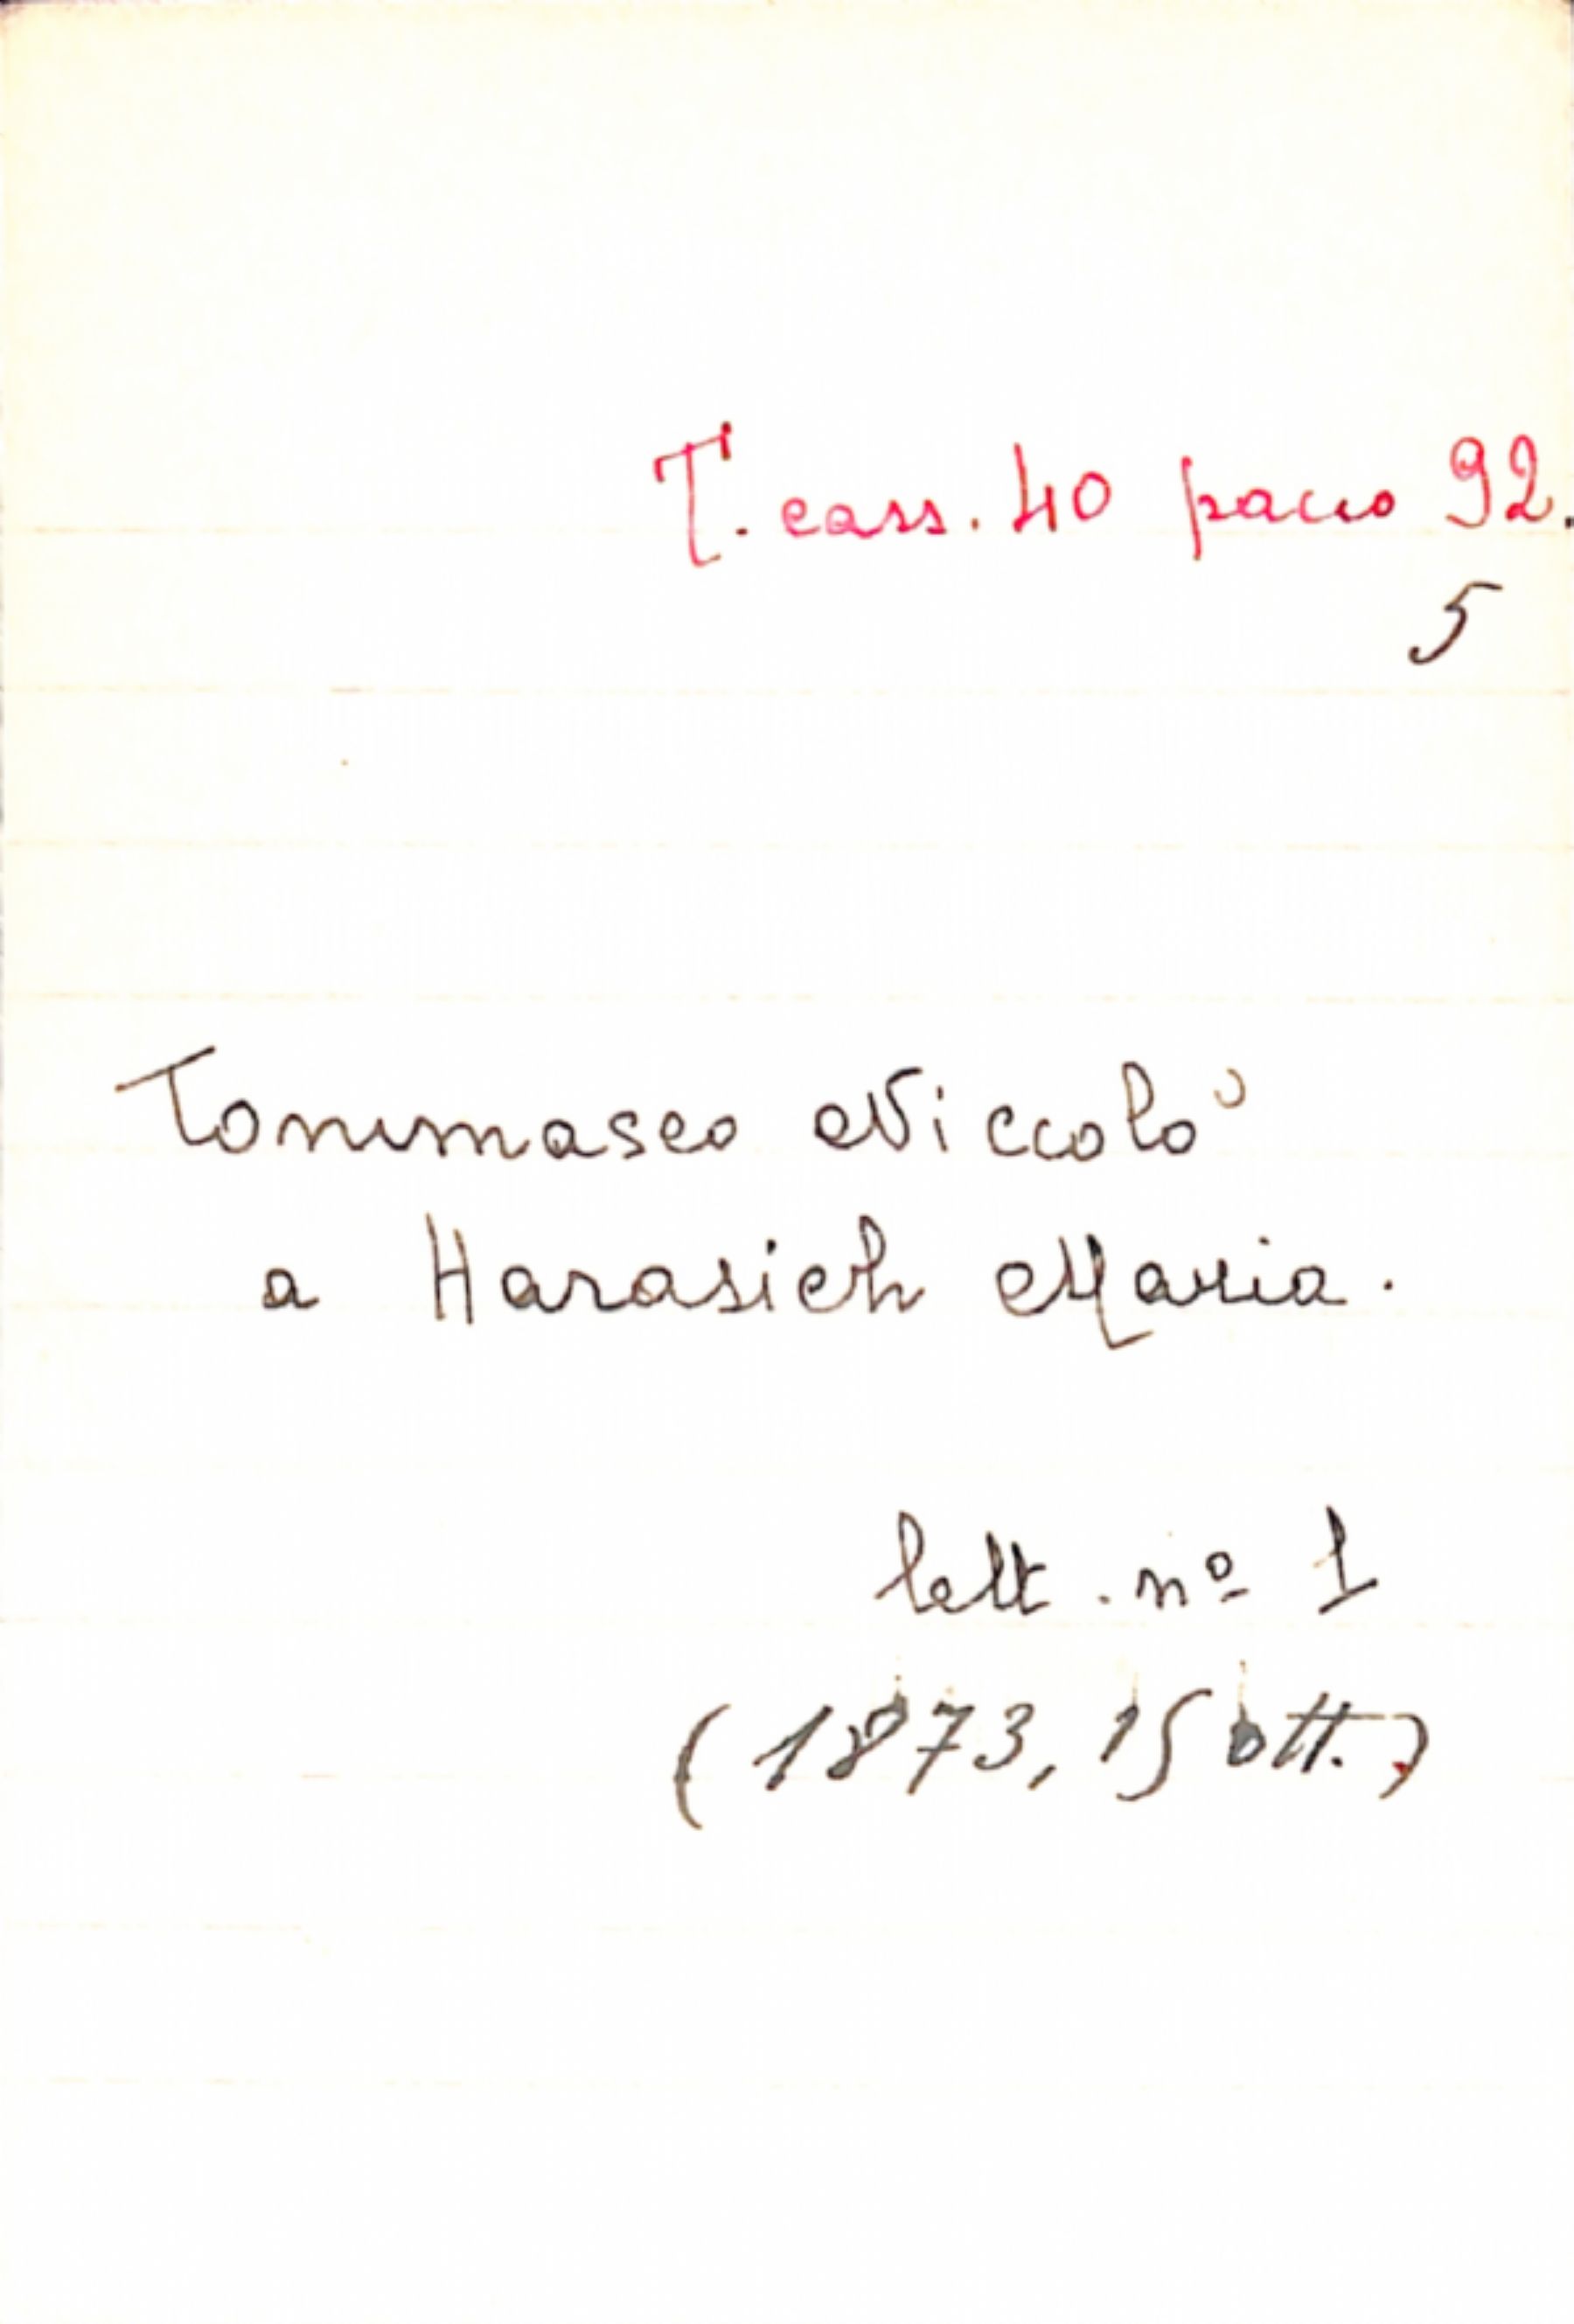 T. cass. 40 pacco 92.
5
Tommaseo Niccolò
a Harasich Maria.
lett. nº 1
(1873, 15 ott.)